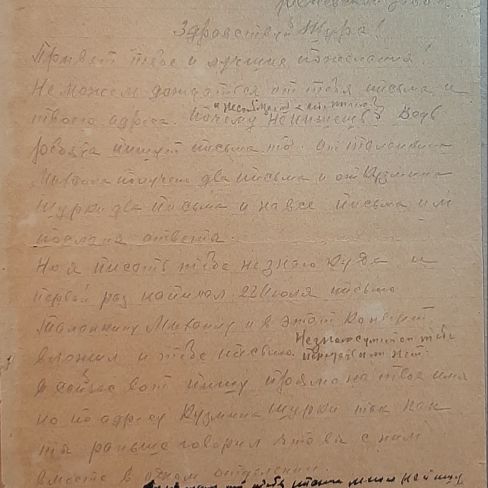 Здравствуй Шура!
Привет тебе и лучшие пожелания!
Не можем дождаться от тебя письма и
твоего адреса. Почему не пишешь? Ведь
ребята пишут письма то. От Талонкина
получен два письма и от Кузмина
Шурки два письма и на все письма им
послана ответа.
Но я писать тебе не знаю куда и
первой раз написал 22 Июля письмо
Талонкину и в этот конверт
вложил и тебе письмо Не знаю сумел он тебе
передать или нет.
А сейчас вот пишу прямо на твое имя
но по адресу Кузмина Шурки так как
ты раньше говорил что вы с ним
вместе в одном отделении.